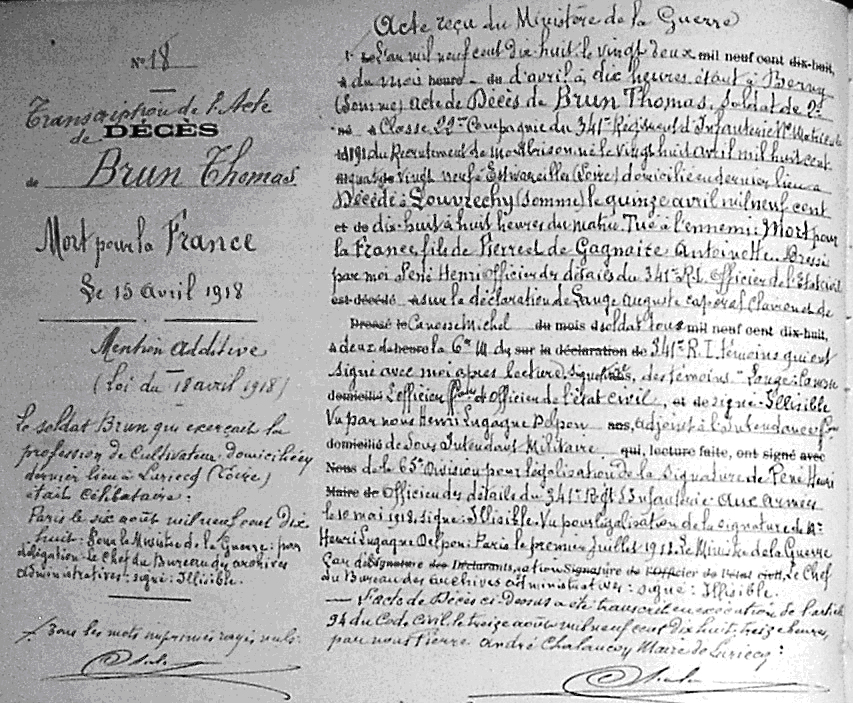 N° 18
Transcription de l'Acte
de DÉCÈS
de Brun Thomas
Mort pour la France
Le 15 avril 1918
Mention additive
(Loi du 18 avril 1918)
Le soldat Brun qui exerçait la
profession de Cultivateur domicilié en
dernier lieu à Luriecq (Loire)
était célibataire:
Paris le six août mil neuf cent dix
huit: Pour le Ministre de la Guerre: par
délégation: le Chef du Bureau des archives
administratives: signé: Illisible.
Tous les mots imprimés rayés nuls.
Acte reçu du Ministère de la Guerre
L'an mil neuf cent dix huit le vingt deux mil neuf cent dix-huit,
à du mois heure du d'avril à dix heures étant à Berny
(Somme) acte de Décès de Brun Thomas, Soldat de 2e
né à Classe 22me Compagnie du 341e Régiment d'Infanterie N° Matricule
du Recrutement de Montbrison né le vingt huit avril mil huit cent
quatre vingt neuf à Estivareilles (Loire) domicilié en dernier lieu à
Décédé à Louvrechy (Somme) le quinze avril mil neuf cent
et de dix-huit à huit heures du matin Tué à l'ennemi: Mort pour
la France, fils de Pierre et de Gagnaire Antoinette Dressé
par moi Pené Henri Officier des détails du 341e R.I. Officier de l'Etat civil
est décédé sur la déclaration de Lauge Auguste caporal Clairon et de
Dressé le Canosse Michel du mois d soldat tous mil neuf cent dix-huit,
à deux de heure la 6e du sur la déclaration de 341e R.I. témoins qui ont
signé avec moi après lecture. des témoins "Lauge:
domicilié L'officier officier de l'état civil, et de signé: Illisible
Vu par nous Henri Lugagne Delpon ans, adjoint à l'Intendance
domicilié de Sous Intendant Militaire qui, lecture faite, ont signé avec
Nous de la 65e Division pour légalisation de la signature de Pené Henri
Maire de Officier des détails du 341e Regt d'Infanterie. Aux Armées
le 10 mai 1918, signé: Illisible. Vu pour légalisation de la signature de Mr
Henri Lugagne Delpon: Paris le premier Juillet 1918. Le Ministre de la Guerre
Signature des Déclarants, Signature de l'Officier de l'état civil, Le Chef
du Bureau des Archives administratives: signé: Illisible.
L'acte de Décès ci-dessus a été transcrit en exécution de l'article
94 du Code Civil, le treize août mil neuf cent dix huit, treize heures,
par nous Pierre André Chalancon Maire de Luriecq: